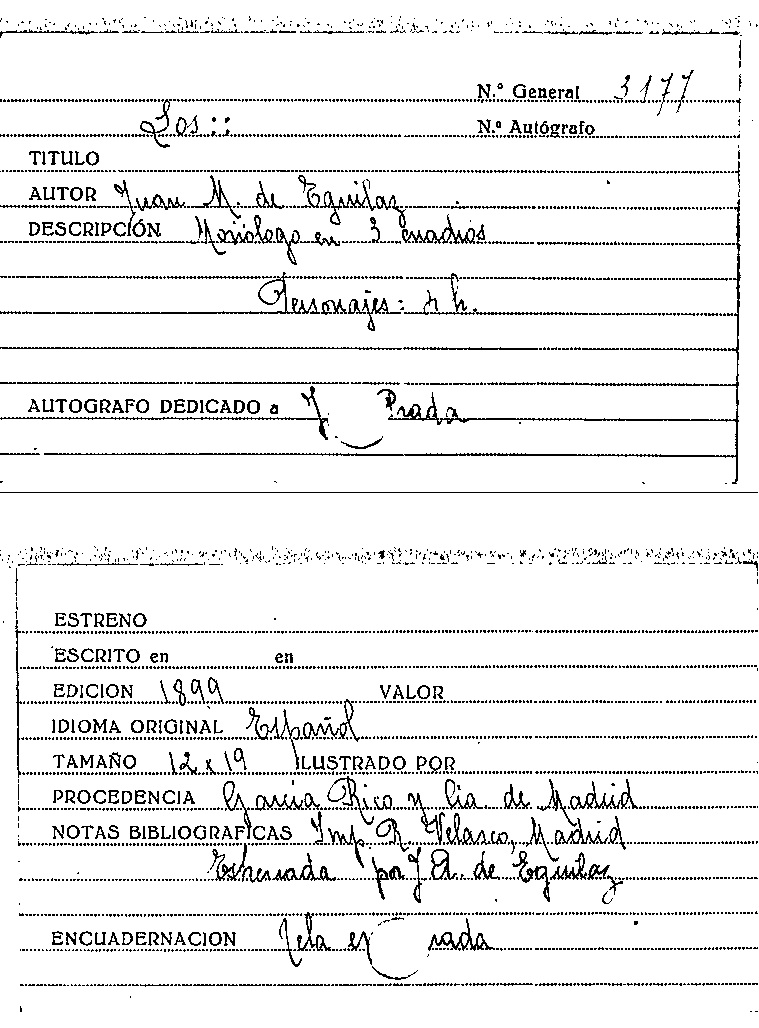 N.º General 3177
Los ::
N.º Autógrafo
TITULO
AUTOR Juan M. de Eguilaz
DESCRIPCIÓN Monólogo en 3 cuadros
Personajes: 4 h.
AUTOGRAFO DEDICADO a
Prada
ESTRENO
ESCRITO en en
EDICION 1899 VALOR
IDIOMA ORIGINAL Español
TAMAÑO 12 x 19 ILUSTRADO POR
PROCEDENCIA García Rico y Cia. de Madrid
NOTAS BIBLIOGRAFICAS Imp. R. Velasco, Madrid
Estrenada por J. A. de Eguilaz
ENCUADERNACION Tela